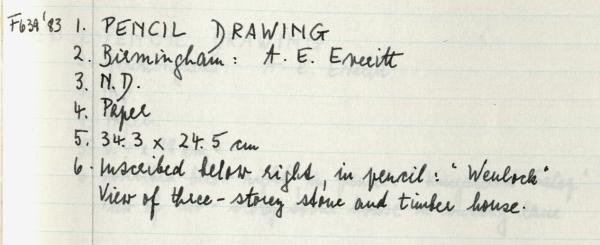 F639'83 1. PENCIL DRAWING
2. Birmingham: A. E. Everitt
3. N.D.
4. Paper
5. 34.3 x 24.5 cm
6. Inscribed below right, in pencil: "Wenlock"
View of three-storey stone and timber house.